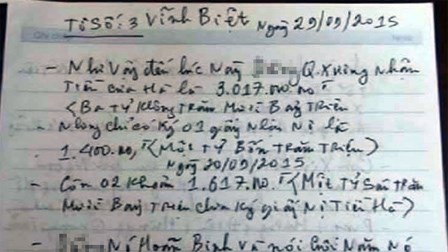 Tờ Số: 3 Vĩnh Biệt Ngày 29/09/2015
- Như Vậy đến lúc Này Q. Xuống Nhận
Tiền của Hà là 3.017.000.000đ
<Ba Tỷ Không Trăm Mười Bảy Triệu
- Nhưng chỉ có Ký 01 giấy Nhận Nợ là
1.400.000, <Một Tỷ Bốn Trăm Triệu>
Ngày 20/09/2015
- Còn 02 Khoản 1.617.000. <Một Tỷ Sáu Trăm
Mười Bảy Triệu chưa Ký giấy Nợ Tiền Hà>
- Nó Hoãn Binh và nói Cuối Năm Nó